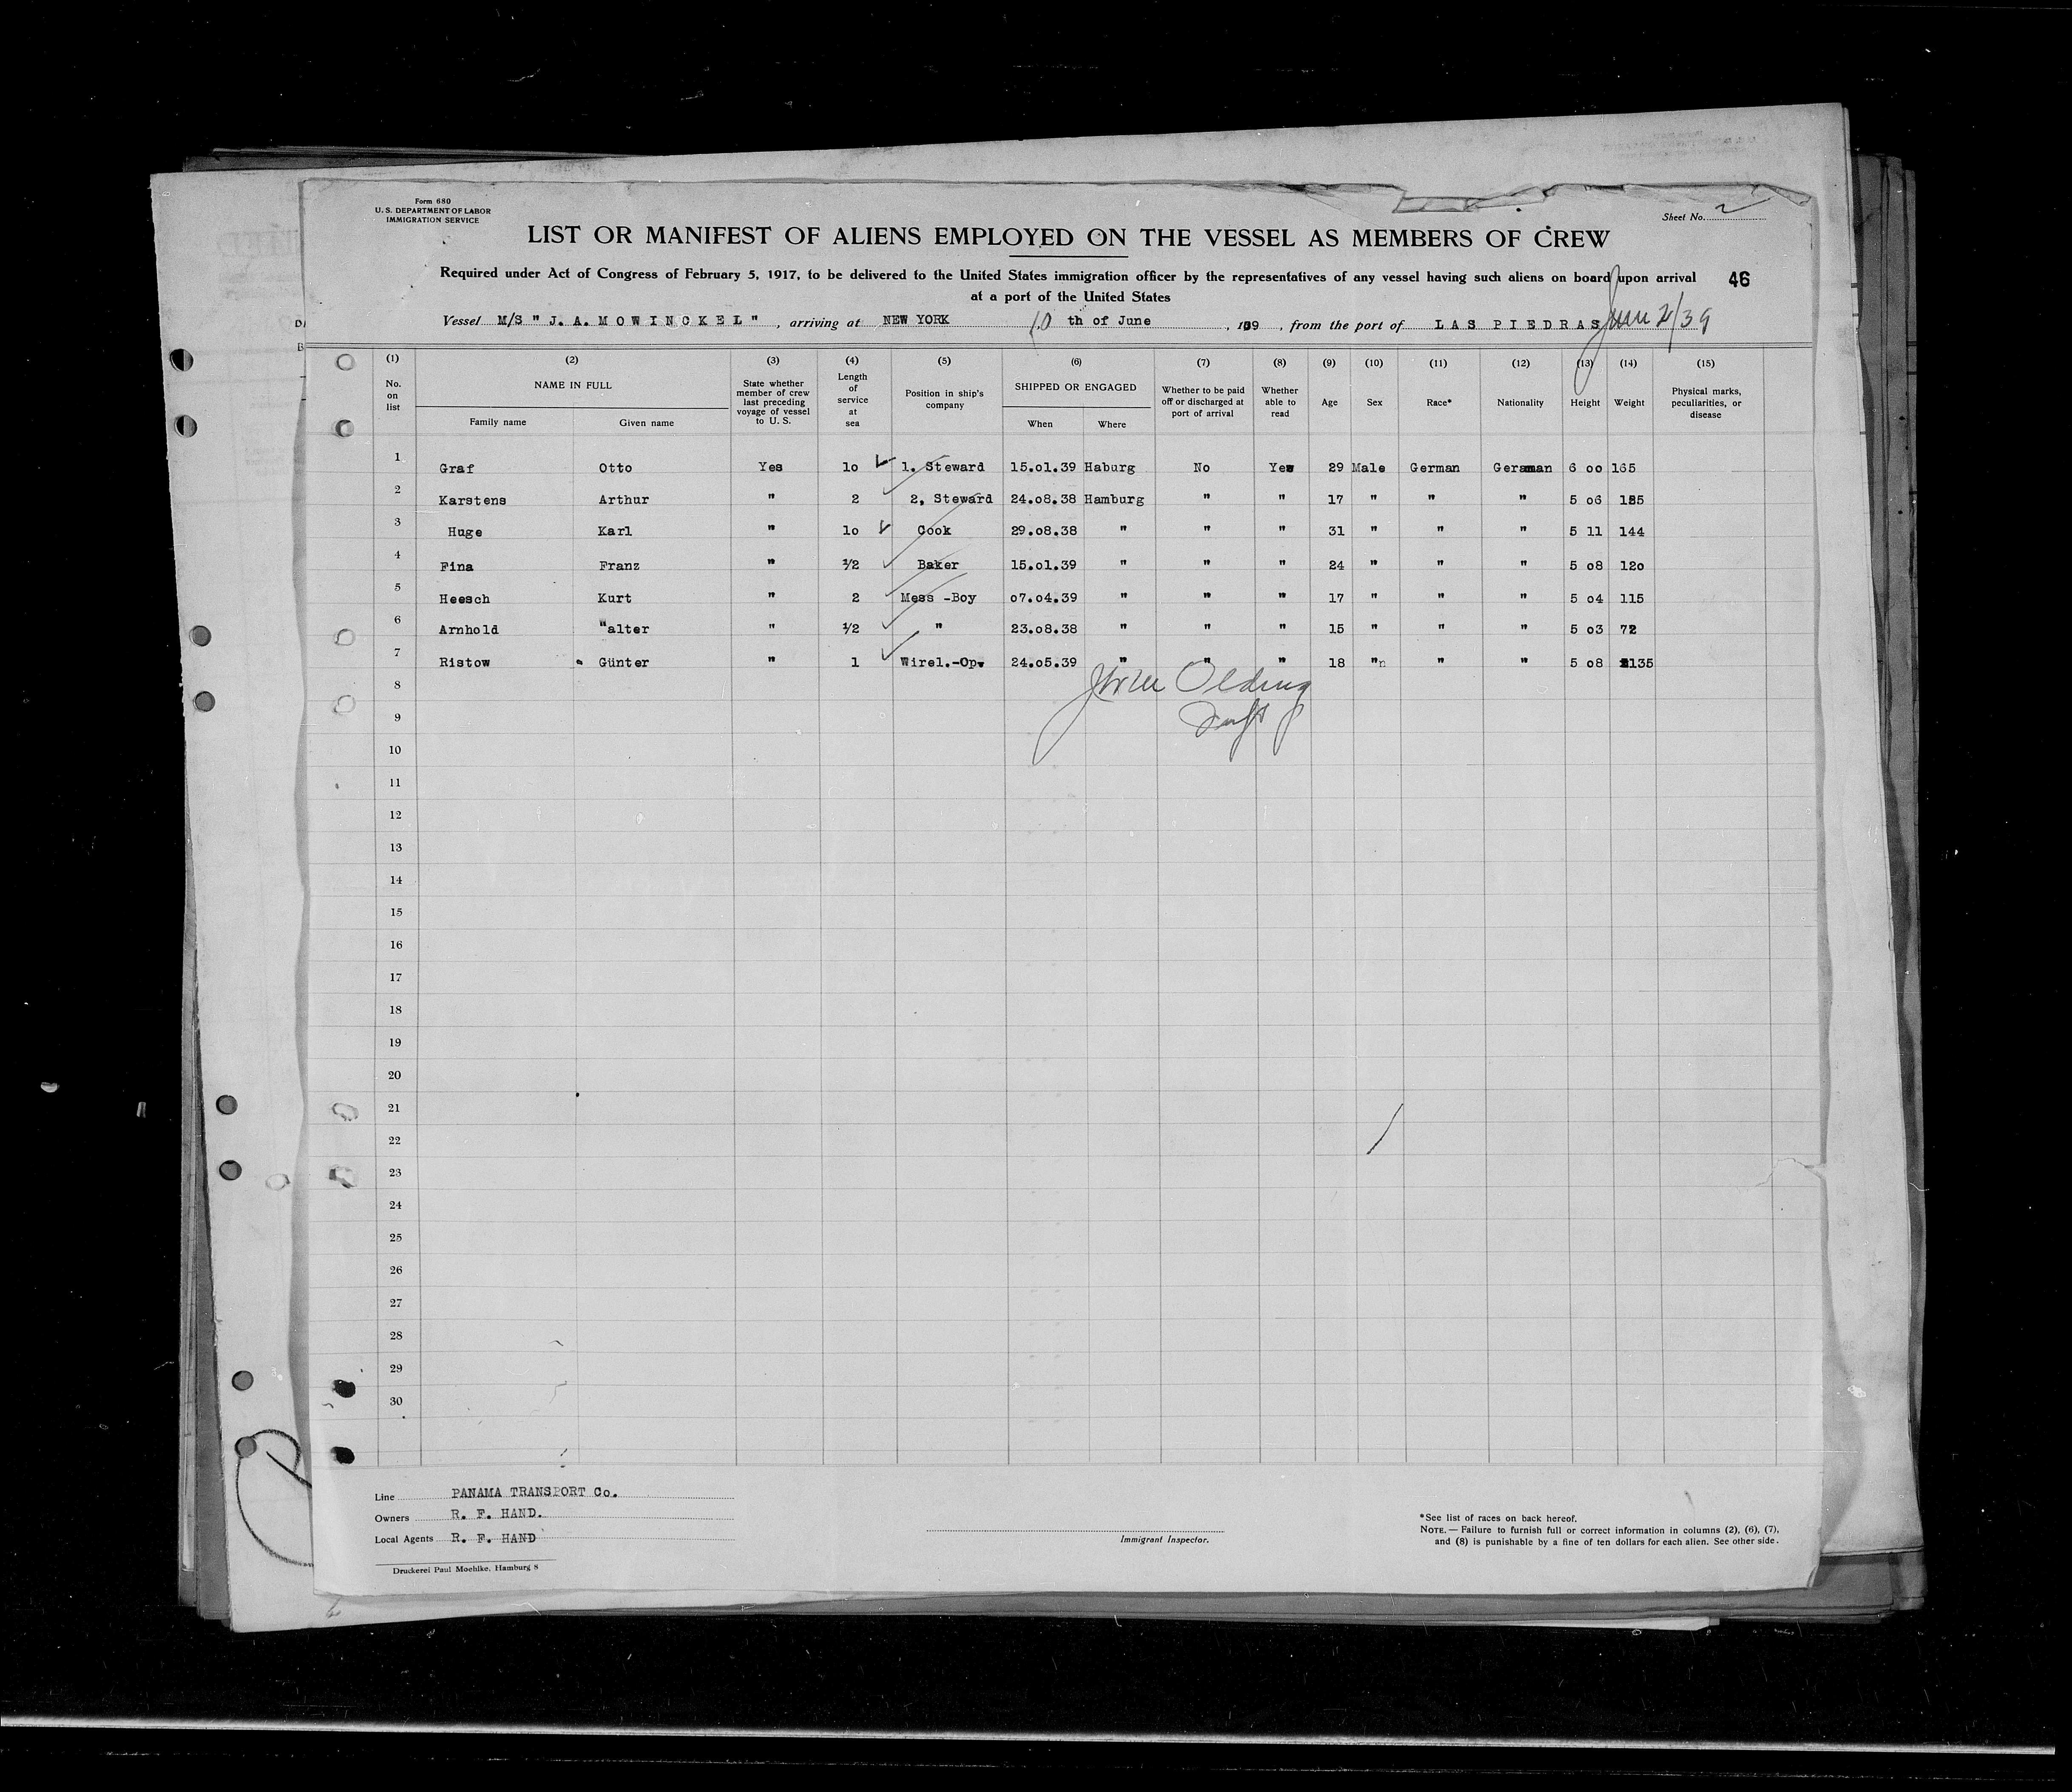 Form 680
U. S. DEPARTMENT OF LABOR
IMMIGRATION SERVICE
Sheet No. 2
LIST OR MANIFEST OF ALIENS EMPLOYED ON THE VESSEL AS MEMBERS OF CREW
Required under Act of Congress of February 5, 1917, to be delivered to the United States immigration officer by the representatives of any vessel having such aliens on board upon arrival
46
at a port of the United States
Vessel M/S " J. A. MOWINCKEL " , arriving at NEW YORK 10 th of June , 139 , from the port of LAS PIEDRAS June 2/39
(1) (2) (3) (4) (5) (6) (7) (8) (9) (10) (11) (12) (13) (14) (15)
No. on list NAME IN FULL Family name Given name State whether member of crew last preceding voyage of vessel to U. S. Length of service at sea Position in ship's company SHIPPED OR ENGAGED When Where Whether to be paid off or discharged at port of arrival Whether able to read Age Sex Race* Nationality Height Weight Physical marks, peculiarities, or disease
1 Graf Otto Yes 10 1. Steward 15.01.39 Haburg No Yes 29 Male German Geraman 6 00 165
2 Karstens Arthur " 2 2, Steward 24.08.38 Hamburg " " 17 " " " 5 06 185
3 Huge Karl " 10 Cook 29.08.38 " " " 31 " " " 5 11 144
4 Fina Franz " 1/2 Baker 15.01.39 " " " 24 " " " 5 08 120
5 Heesch Kurt " 2 Mess -Boy 07.04.39 " " " 17 " " " 5 04 115
6 Arnhold "alter " 1/2 " 23.08.38 " " " 15 " " " 5 03 72
7 Ristow Günter " 1 Wirel.-Op. 24.05.39 " " " 18 "n " " 5 08 135
8
Olding
9
10
11
12
13
14
15
16
17
18
19
20
21
22
23
24
25
26
27
28
29
30
Line PANAMA TRANSPORT Co.
Owners R. F. HAND.
Local Agents R. F. HAND
Immigrant Inspector.
*See list of races on back hereof.
NOTE.— Failure to furnish full or correct information in columns (2), (6), (7),
and (8) is punishable by a fine of ten dollars for each alien. See other side.
Druckerei Paul Moehlke, Hamburg 8